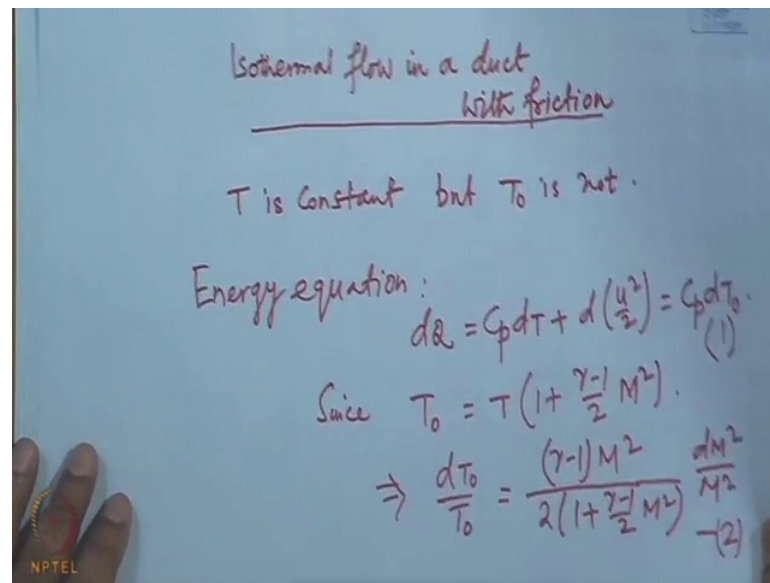 Isothermal flow in a duct
with friction
T is constant but T₀ is not.
Energy equation:
dQ = CpdT + d(u²/2) = CpdT₀.
(1)
Since T₀ = T(1 + γ-1/2 M²).
⇒ dT₀/T₀ = (γ-1)M²/2(1 + γ-1/2 M²) dM²/M²
-(2)
NPTEL